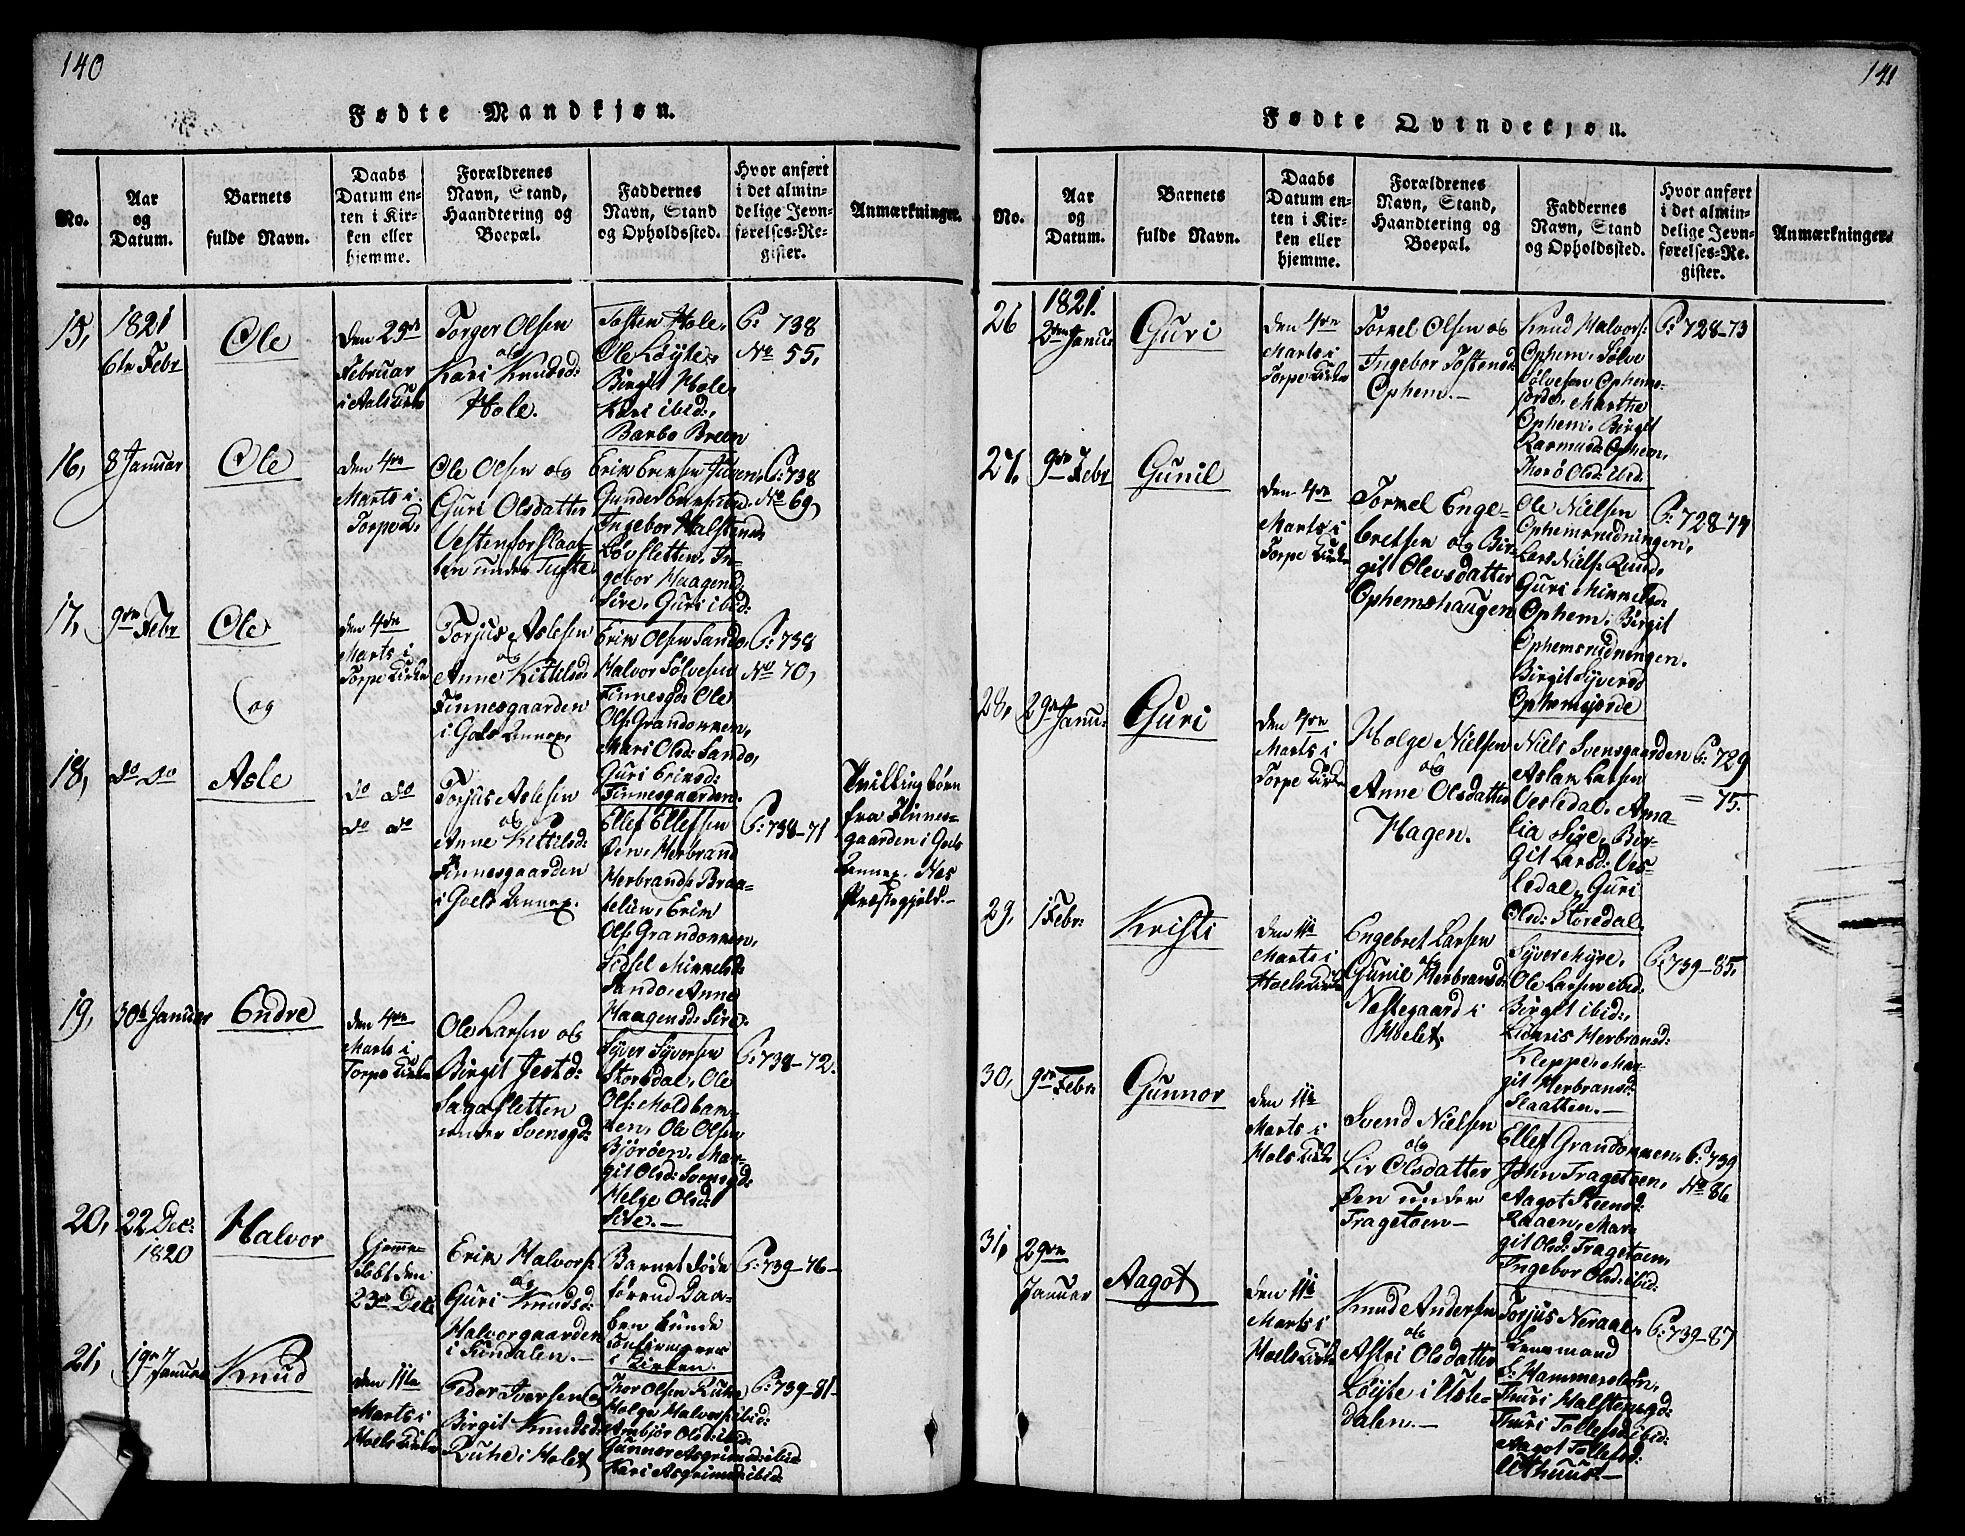 140
Fødte Mandkjøn.
No.
Aar
og
Datum.
Barnets
fulde Navn.
Daabs
Datum en-
ten i Kir-
ken eller
hjemme.
Forældrenes
Navn, Stand,
Haandtering og
Boepæl.
Faddernes
Navn, Stand
og Opholdssted.
Hvor anført
i det almin-
delige Jevn-
førelses-Re-
gister.
Anmærkninger.
15,
1821
6te Febr
Ole
Den 25de
Februar
i Aals Kirke
Torger Olsen
og
Kari Knudsd:
Hole.
Tosten Hole,
Ole Løyte,
Birgit Hole,
Kari ibid:,
Barbo Breen
P: 738
No 55,
16,
8 Januar
Ole
Den 4de
Marts i
Torpe K.
Ole Olsen og
Guri Olsdatter
Vestenforslaat-
ten under Tufte
Erik Eriksen
Ingebor Halstensd:
Løvsletten, In-
gebor Haagensd:
Sire, Guri ibid:
P: 738
No 69,
17,
9de Febr
Ole
og
den 4de
Marts i
Torpe Kirke
Torjus Aslesen
og
Anne Kittilsd:
Finnesgaarden
i Gols Annex,
Erik Olsen Sando,
Halvor Sølvesen
Finnesgd: Ole
Ols: Grandokken,
Mari Olsd: Sando,
Guri Eriksd:
Finnesgaarden.
P: 738
No 70,
18,
do do
Asle
do do
do do
Torjus Aslesen
og
Anne Kittilsd:
Finnesgaarden
i Goels Annex.
Ellef Ellefsen
Øen, Herbrand
Herbrands: Braa-
telien, Erik
Ols: Grandokken,
Sidsel Mikkelsd:
Sando, Anne
Haagensd: Sire.
P: 738-71
Tvillingbørn
fra Finnes-
gaarden i Gols
Annex. Næs
Præstegjeld.-
19,
30te Januar
Endre
den 4de
Marts i
Torpe Kirke
Ole Larsen og
Birgit Jestd:
Sagasletten
under Svensgd:
Syver Syversen
Storedal, Ole
Ols: Moldbak-
ken, Ole Olsen
Bjøröen, Mar-
git Olsd: Svensgd:
Helge Olsd:
Sire.-
P: 738-72.
20,
22 Dec:
1820
Halvor
Hjemme-
døbt den
23de Dec:
Erik Halvors:
og
Guri Knudsd:
Halvorgaarden
i Sundalen.-
Barnet døde
førend Daa-
ben kunde
confirmeres
i Kirken.
P: 739-76-
21,
19de Januar
Knud
den 11te
Marts i
Hoels Kirke
Peder Iversen og
Birgit Knudsd:
Ruhe i Holet
Thor Olsen Ruhe,
Holge Halvors: ibid:
Arnbjør Olsd: ibid:
Gunnor Asgrimsd: ibid
Kari Asgrimsd: ibid:
P: 739-81-
141
Fødte Qvindekjøn.
No.
Aar
og
Datum.
Barnets
fulde Navn.
Daabs
Datum en-
ten i Kir-
ken eller
hjemme.
Forældrenes
Navn, Stand,
Haandtering og
Boepæl.
Faddernes
Navn, Stand
og Opholdssted.
Hvor anført
i det almin-
delige Jevn-
førelses-Re-
gister.
Anmærkninger.
26
1821.
2den Janu:
Guri
den 4de
Marts i
Torpe Kirke
Torkel Olsen og
Ingebor Tostensd:
Ophem.-
Knud Halvors:
Ophem, Sølve
Sølvesen Ophems-
jorde, Marthe
Ophem, Birgit
Rasmusd: Ophem,
Thorø Olsd: ibid.
P: 728-73
27,
9de Febr
Gunil
den 4de
Marts i
Torpe Kirke
Torkel Enge-
bretsen og Bir-
git Olevsdatter
Ophemshaugen
Ole Nielsen
Ophemsrudningen,
Lars Niels: Ruud,
Guri Mikkelsd:
Ophem, Birgit
Ophemsrudningen.
Birgit Syversd:
Ophemsjorde
P: 728-74
28,
29de Janu:
Guri
den 4de
Marts i
Torpe Kirke
Holge Nielsen
og
Anne Olsdatter
Hagen.
Niels Svensgaarden
Aslak Larsen
Vesledal, Ama-
lia Sire, Bir-
git Larsd: Ves-
ledal, Guri
Olsd: Storedal.
P: 729
= 75.
29,
1 Febr:
Kristi
den 11te
Marts i
Hoels Kirke
Engebret Larsen
og
Gunil Herbrandsd:
Nestegaard i
Hoelet.
Syver Myre,
Ole Larsen ibid:
Birgit ibid:,
Herbransd:
Kleppe, Mar-
git Herbransd:
Slaatten.-
P: 739-85,
30,
9de Febr
Gunnor
den 11te
Marts i
Hols Kirke
Svend Nielsen
og
Liv Olsdatter
Øen under
Tragetøen-
Ellef Grandokken,
John Tragetoen,
Aagot Steensd:
Raaen, Mar-
git Olsd: Tragetoen,
Ingebor Olsd: ibid:
P: 739
No 86
31,
29de
Januar
Aagot
den 11te
Marts i
Hoels Kirke
Knud Andersen
og
Astri Olsdatter
Løyte i Uste-
dalen.-
Torjus Neraal,
Lensmand
E: Hammersbøn,
Thuri Halstensgd:
Thuri Tollefsd: ibid:
Aagot Tollefsd:
Uthuus-
P: 739-87